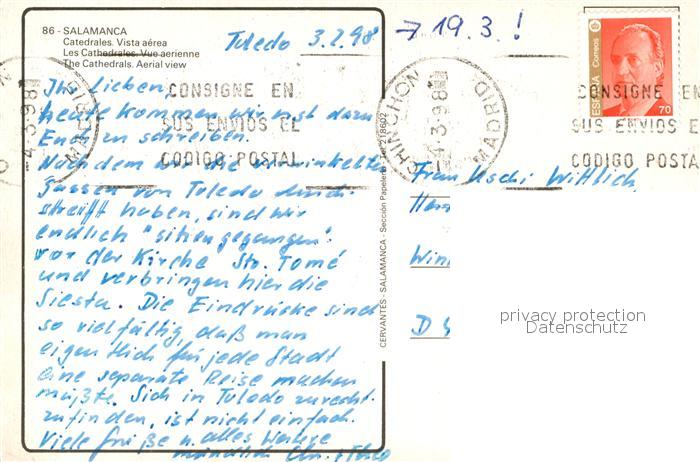 86 - SALAMANCA
Catedrales. Vista aérea
Les Cathedrales. Vue aerienne
The Cathedrals. Aerial view
Toledo 3.2.98
→ 19.3.!
Ihr Lieben,
heute kommen wir erst dazu
Euch zu schreiben.
Nachdem wir die verwinkelten
Gassen von Toledo durch-
streift haben, sind wir
endlich "sitzen gegangen":
vor der Kirche Sto. Tomé
und verbringen hier die
Siesta. Die Eindrücke sind
so vielfältig, daß man
eigentlich für jede Stadt
eine separate Reise machen
müßte. Sich in Toledo zurecht-
zufinden, ist nicht einfach.
Viele Grüße u. alles Weitere
mündlich Chr. +
CONSIGNE EN
SUS ENVIOS EL
CODIGO POSTAL
MADRID
-4.3.98
CHINCHON
-4.3.98
MADRID
CONSIGNE EN
SUS ENVIOS E
CODIGO POSTA
ESPAÑA Correos
70
CERVANTES - SALAMANCA - Sección Papelería - Tel. 218602
Frau Uschi Wittlich
D
privacy protection
Datenschutz